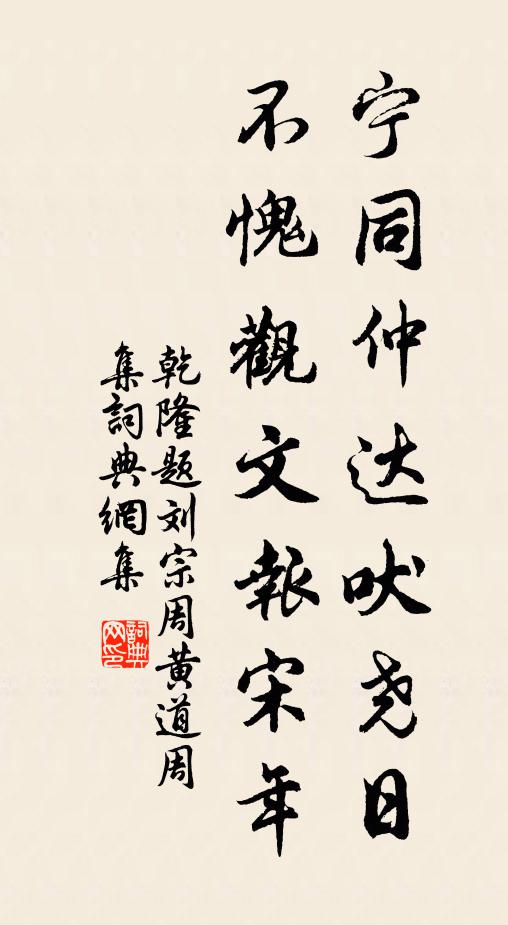 宁同仲达吠尧日
不愧觀文報宋年
乾隆题刘宗周黄道周
集詞典網集
詞典网印